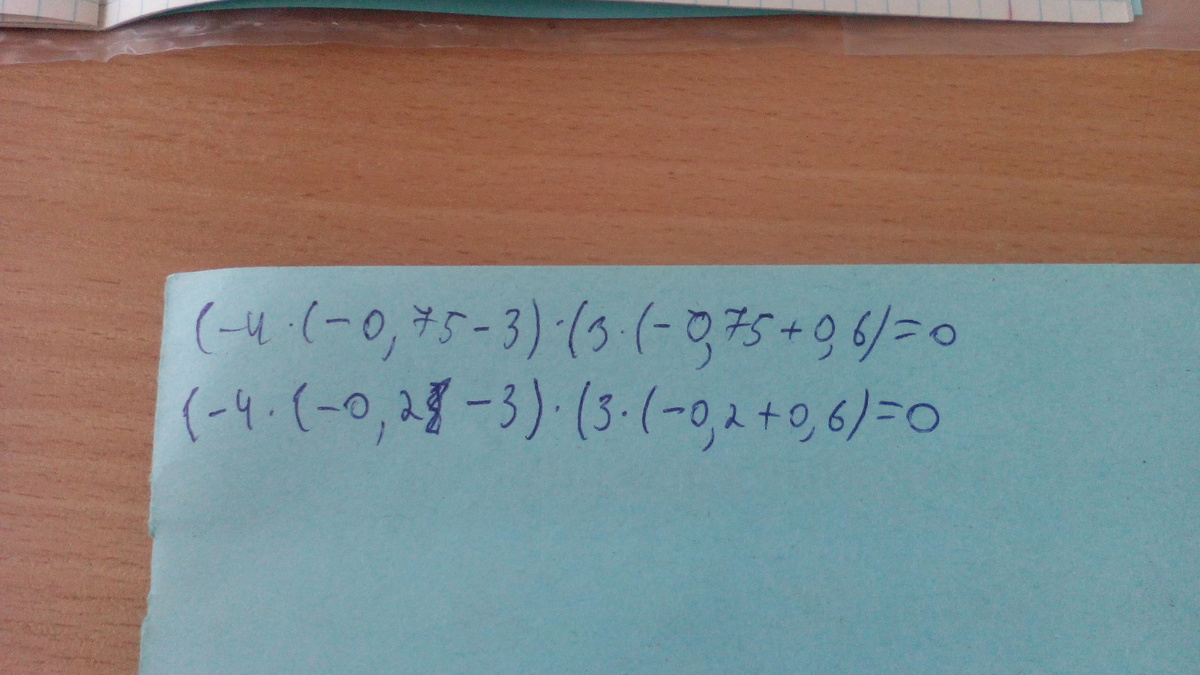 (-4·(-0,75-3)·(3·(-0,75+0,6)=0
(-4·(-0,2 -3)·(3·(-0,2+0,6)=0